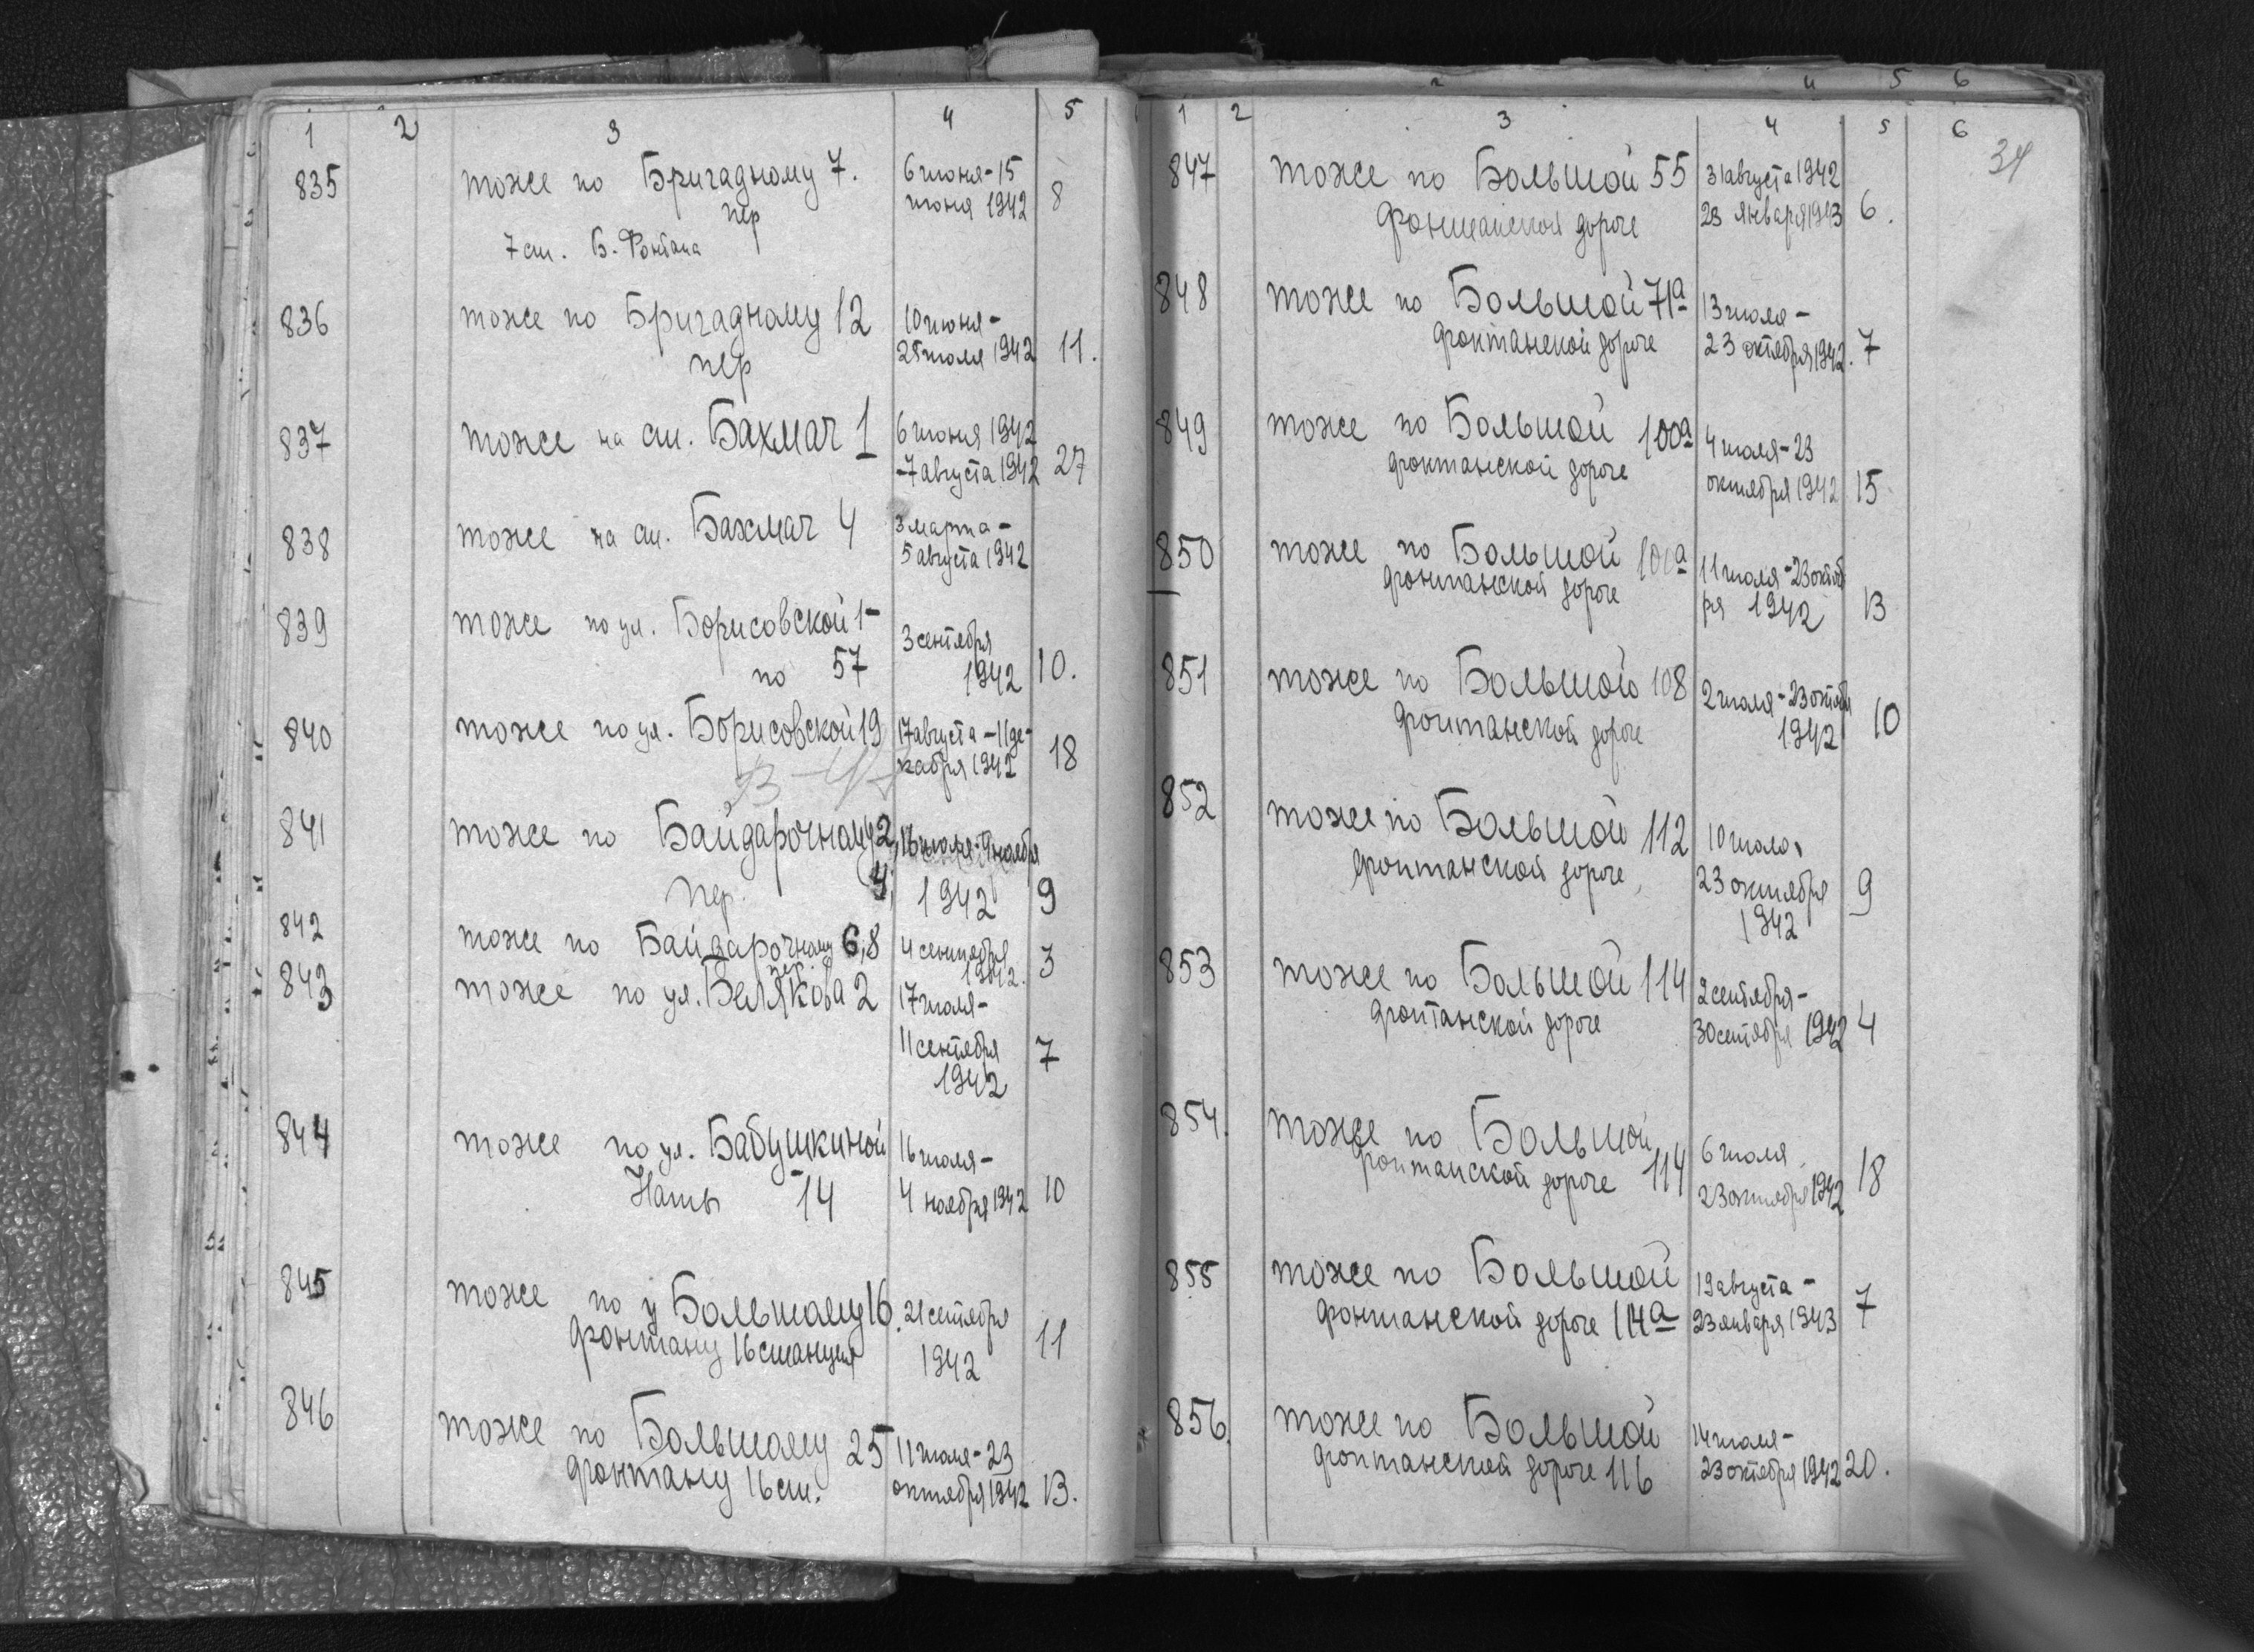 1 2 3 4 5
835 тоже по Бригадному 7. 6 июня - 15
пер июня 1942 8
7 ст. Б. Фонтана
836 тоже по Бригадному 12 10 июня -
пер 25 июля 1942 11.
837 тоже на ст. Бахмач 1 6 июня 1942
- 7 августа 1942 27
838 тоже на ст. Бахмач 4 3 марта -
5 августа 1942
839 тоже по ул. Борисовской 1-
по 57 3 сентября
1942 10.
840 тоже по ул. Борисовской 19 17 августа - 11 де-
кабря 1942 18
841 тоже по Байдарочному 2, 16 июля - 9 ноября
пер. 4, 1942 9
842 тоже по Байдарочному 6,8 4 сентября
пер. 1942. 3
843 тоже по ул. Белякова 2 17 июля -
11 сентября 7
1942
844 тоже по ул. Бабушкиной 16 июля -
Наты 14 4 ноября 1942 10
845 тоже по у Большому 16. 21 сентября
фонтану 16 станция 1942 11
846 тоже по Большому 25 11 июля - 23
фонтану 16 ст. октября 1942 13.
2 4 5 6
1 2 3 4 5 6
34
847 тоже по Большой 55 31 августа 1942
фонтанской дороге 23 января 1943 6.
848 тоже по Большой 71а 13 июля -
фонтанской дороге 23 октября 1942. 7
849 тоже по Большой 100а 4 июля - 23
фонтанской дороге октября 1942 15
850 тоже по Большой 100а 11 июля - 23 октяб
фонтанской дороге ря 1942 13
851 тоже по Большой 108 2 июля - 23 октябр
фонтанской дороге 1942 10
852 тоже по Большой 112 10 июля
фонтанской дороге, 23 октября 9
1942
853 тоже по Большой 114 2 сентября -
фонтанской дороге 30 сентября 1942 4
854. тоже по Большой 6 июля
фонтанской дороге 114 23 октября 1942 18
855 тоже по Большой 19 августа -
фонтанской дороге 114а 23 января 1943 7
856. тоже по Большой 14 июля -
фонтанской дороге 116 23 октября 1942 20.